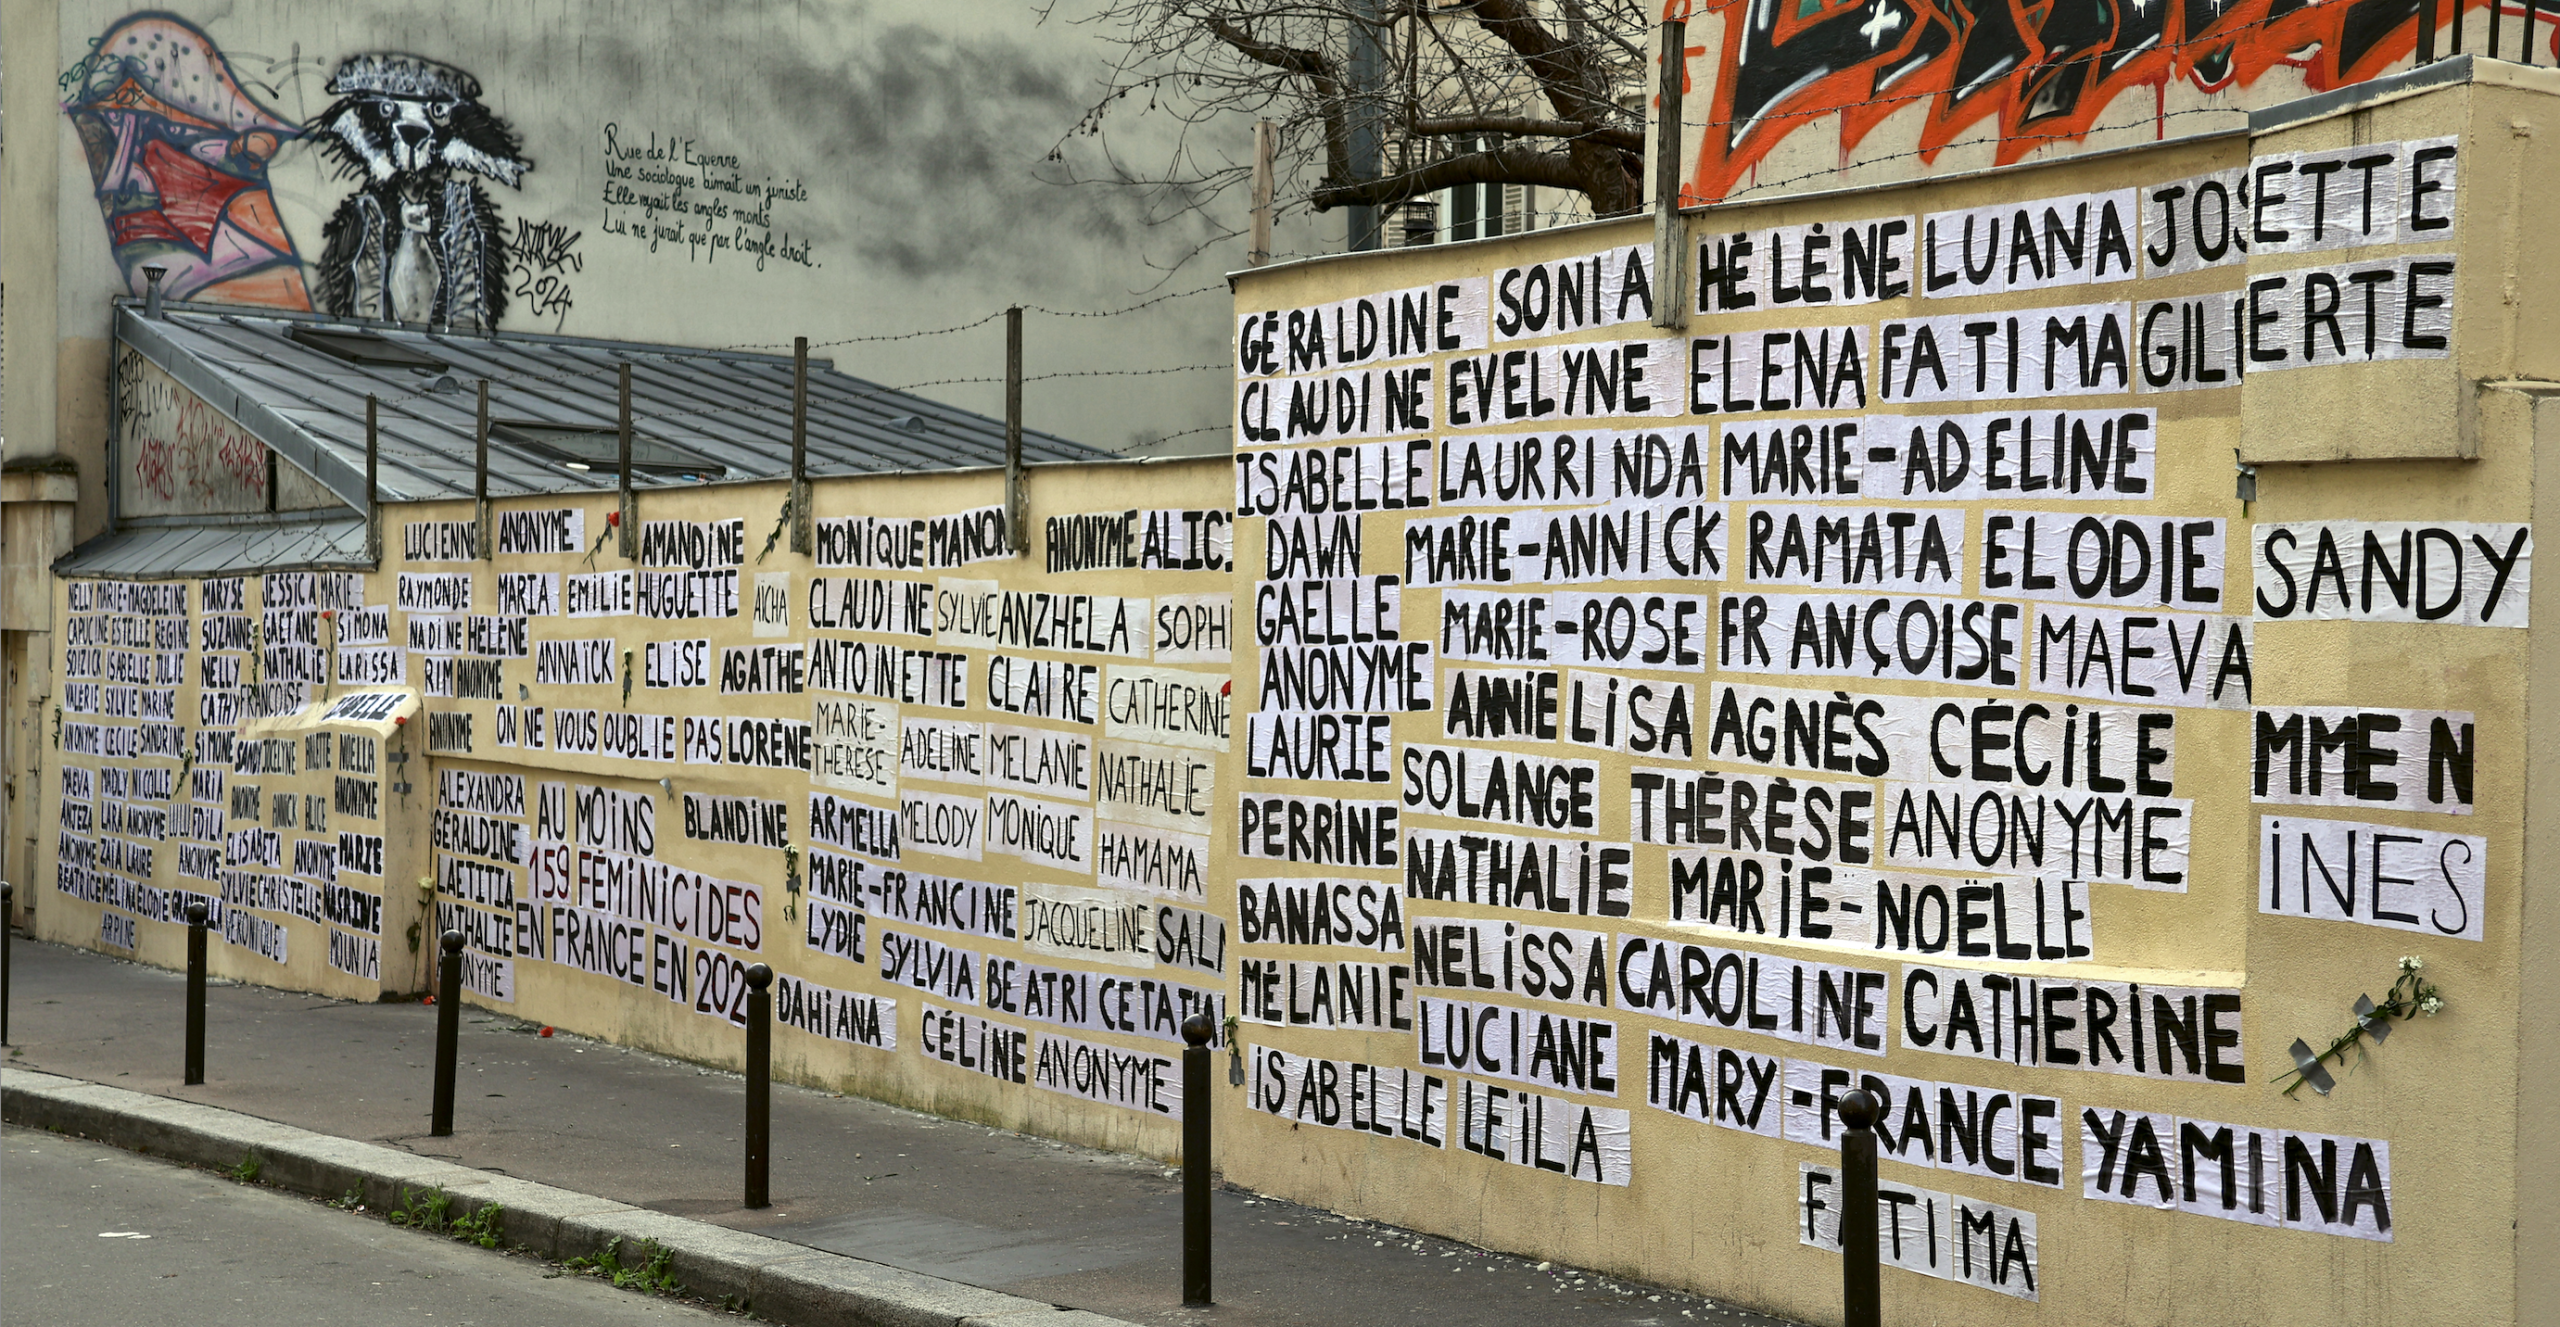 Rue de l'Equerre
Une sociologue aimait un juriste
Elle voyait les angles morts
Lui ne jurait que par l'angle droit.
2024
NELLY MARIE-MAGDELEINE MARYSE JESSICA MARIE
CAPUCINE ESTELLE REGINE SUZANNE GAETANE SIMONA
SOIZICK ISABELLE JULIE NELLY NATHALIE LARISSA
VALÉRIE SYLVIE MARINE CATHY FRANÇOISE
ANONYME CECILE SANDRINE SIMONE SANDY JOCELYNE ARLETTE NOELLA
MAEVA MADLY NICOLLE MARIA ANONYME ANNICK ALICE ANONYME
ANTEZA LARA ANONYME LULU FDILA
ANONYME ZAÏA LAURE ANONYME ELISABETA ANONYME MARIE
BEATRICE MELINA ELODIE SYLVIE CHRISTELLE NASRINE
ARPINE VERONIQUE MOUNIA
LUCIENNE ANONYME AMANDINE MONIQUE MANON ANONYME ALICI
RAYMONDE MARIA EMILIE HUGUETTE AÏCHA CLAUDINE SYLVIE ANZHELA SOPHI
NADINE HÉLÈNE ANNAÏCK ELISE AGATHE ANTOINETTE CLAIRE CATHERINE
RIM ANONYME
ANONYME ON NE VOUS OUBLIE PAS LORÈNE MARIE-THÉRÈSE ADELINE MELANIE NATHALIE
ALEXANDRA AU MOINS BLANDINE ARMELLA MELODY MONIQUE HAMAMA
GÉRALDINE 159 FÉMINICIDES MARIE-FRANCINE JACQUELINE SALI
LAETITIA EN FRANCE EN 202 LYDIE SYLVIA BEATRICE TATIA
NATHALIE DAHIANA CÉLINE ANONYME
ANONYME
GÉRALDINE SONIA HÉLÈNE LUANA JOSETTE
CLAUDINE EVELYNE ELENA FATIMA GILBERTE
ISABELLE LAURRINDA MARIE-ADELINE
DAWN MARIE-ANNICK RAMATA ELODIE SANDY
GAELLE MARIE-ROSE FRANÇOISE MAEVA
ANONYME ANNIE LISA AGNÈS CÉCILE MME N
LAURIE SOLANGE THÉRÈSE ANONYME INES
PERRINE NATHALIE MARIE-NOËLLE
BANASSA NELISSA CAROLINE CATHERINE
MÉLANIE LUCIANE MARY-FRANCE YAMINA
ISABELLE LEÏLA
FATIMA